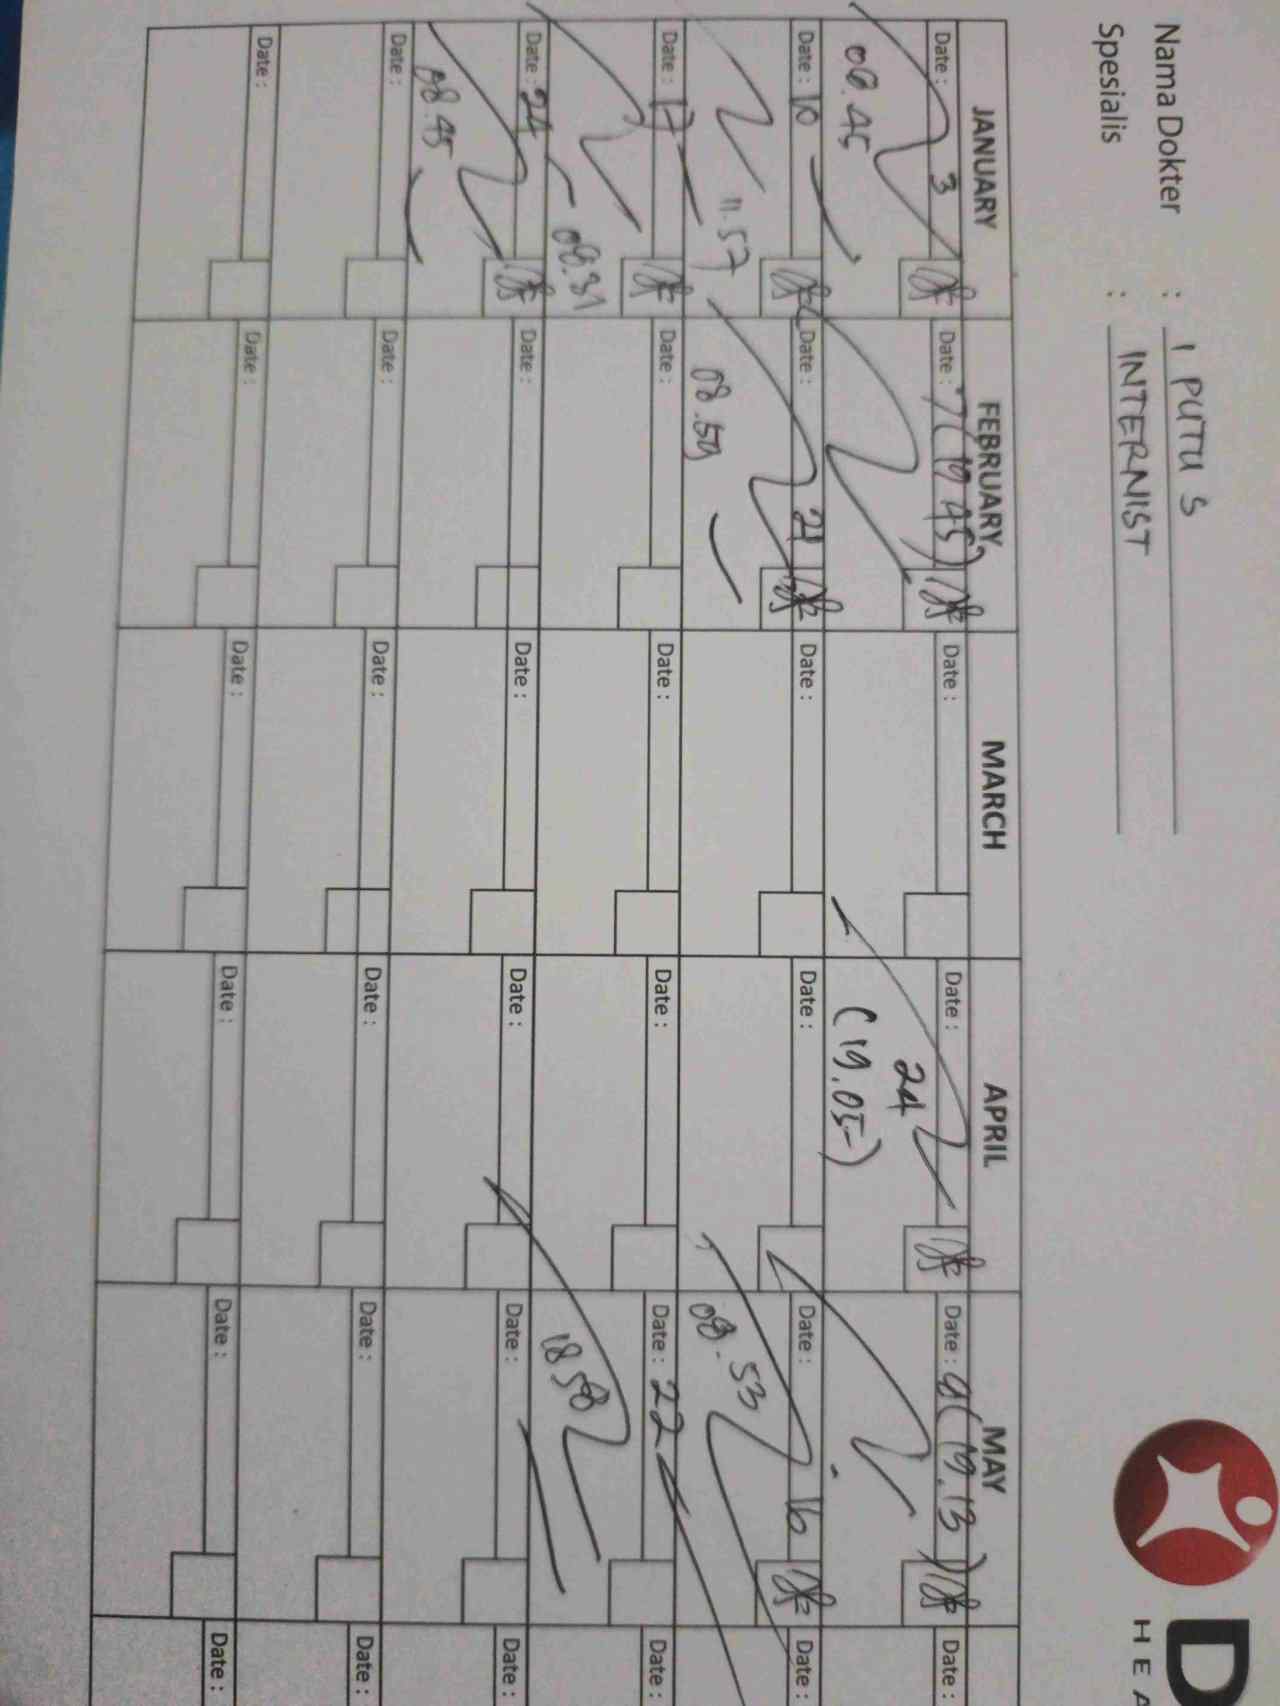 Nama Dokter : I PUTU S
Spesialis : INTERNIST
D
HEA
JANUARY FEBRUARY MARCH APRIL MAY
Date : 3 Date : 7 (19.45) Date : Date : Date : 9 (19.13) Date :
24
(19.05)
Date : 10 Date : 21 Date : Date : Date : 16 Date :
11.57 08.59 08.53
Date : 17 Date : Date : Date : Date : 22 Date :
08.31 18.58
Date : 24 Date : Date : Date : Date : Date :
08.45
Date : Date : Date : Date : Date : Date :
Date : Date : Date : Date : Date : Date :